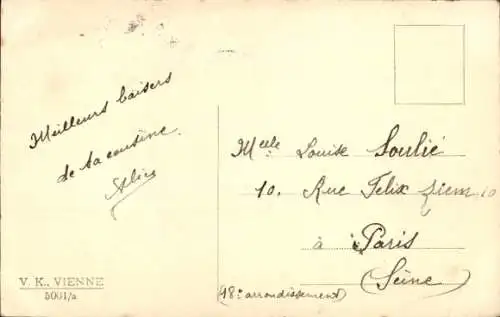 Meilleurs baisers
de ta cousine
Alice
Melle Louise Soulié
10. Rue Felix Ziem 10
à Paris
(Seine)
(18e arrondissement)
V. K., VIENNE
5001/a